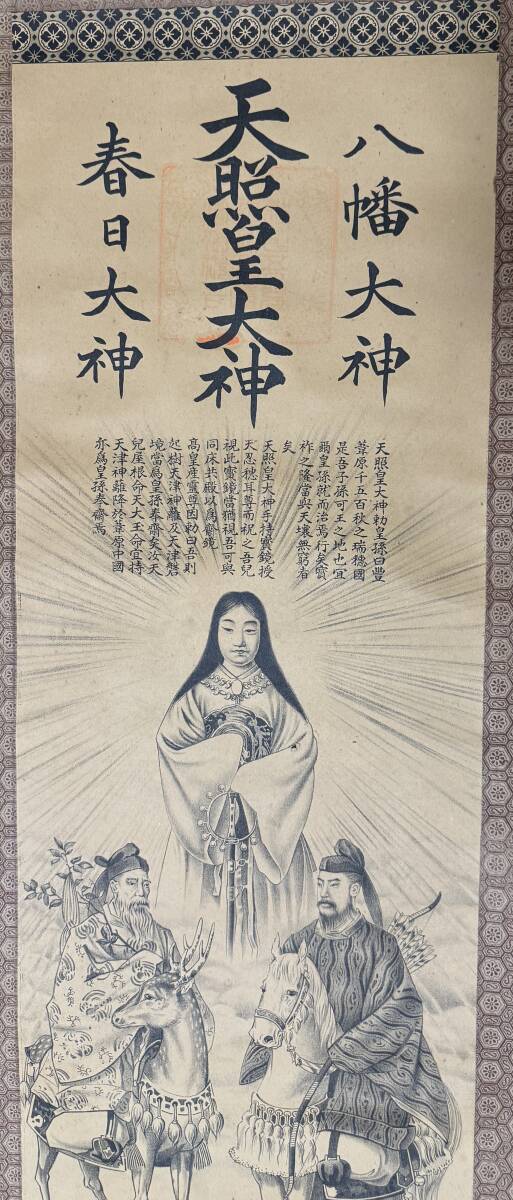 八幡大神
天照皇大神
春日大神
天照皇大神勅皇孫曰豐
葦原千五百秋之瑞穗國
是吾子孫可王之地也宜
爾皇孫就而治焉行矣寶
祚之隆當與天壤無窮者
矣
天照皇大神手持寶鏡授
天忍穗耳尊而祝之吾兒
視此寶鏡當猶視吾可與
同床共殿以爲齋鏡
高皇産靈尊因勅曰吾則
起樹天津神籬及天津磐
境當爲皇孫奉齋矣汝天
兒屋根命天大王命宜持
天津神籬降於葦原中國
亦爲皇孫奉齋焉